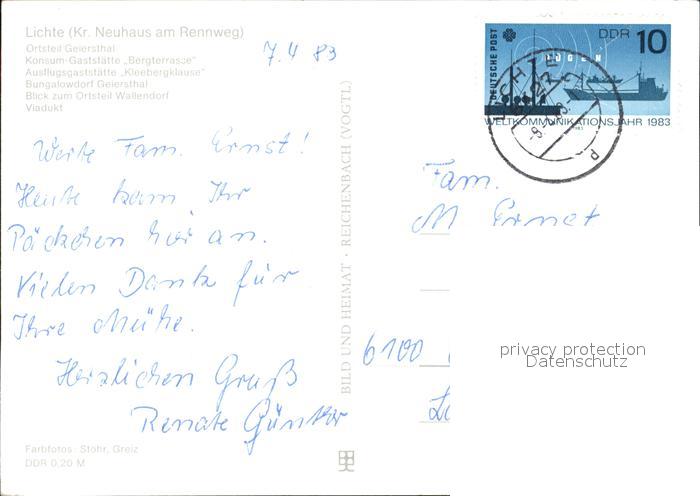 Lichte (Kr. Neuhaus am Rennweg)
Ortsteil Geiersthal
Konsum-Gaststätte „Bergterrasse"
Ausflugsgaststätte „Kleebergklause"
Bungalowdorf Geiersthal
Blick zum Ortsteil Wallendorf
Viadukt
7.4 83
Werte Fam. Ernst!
Heute kam Ihr
Päckchen hier an.
Vielen Dank für
Ihre Mühe.
Herzlichen Gruß
Renate Günther
Farbfotos: Stöhr, Greiz
DDR 0,20 M
BILD UND HEIMAT · REICHENBACH (VOGTL)
DEUTSCHE POST
DDR 10
RÜGEN
WELTKOMMUNIKATIONSJAHR 1983
Fam.
M Ernst
6100
privacy protection
Datenschutz